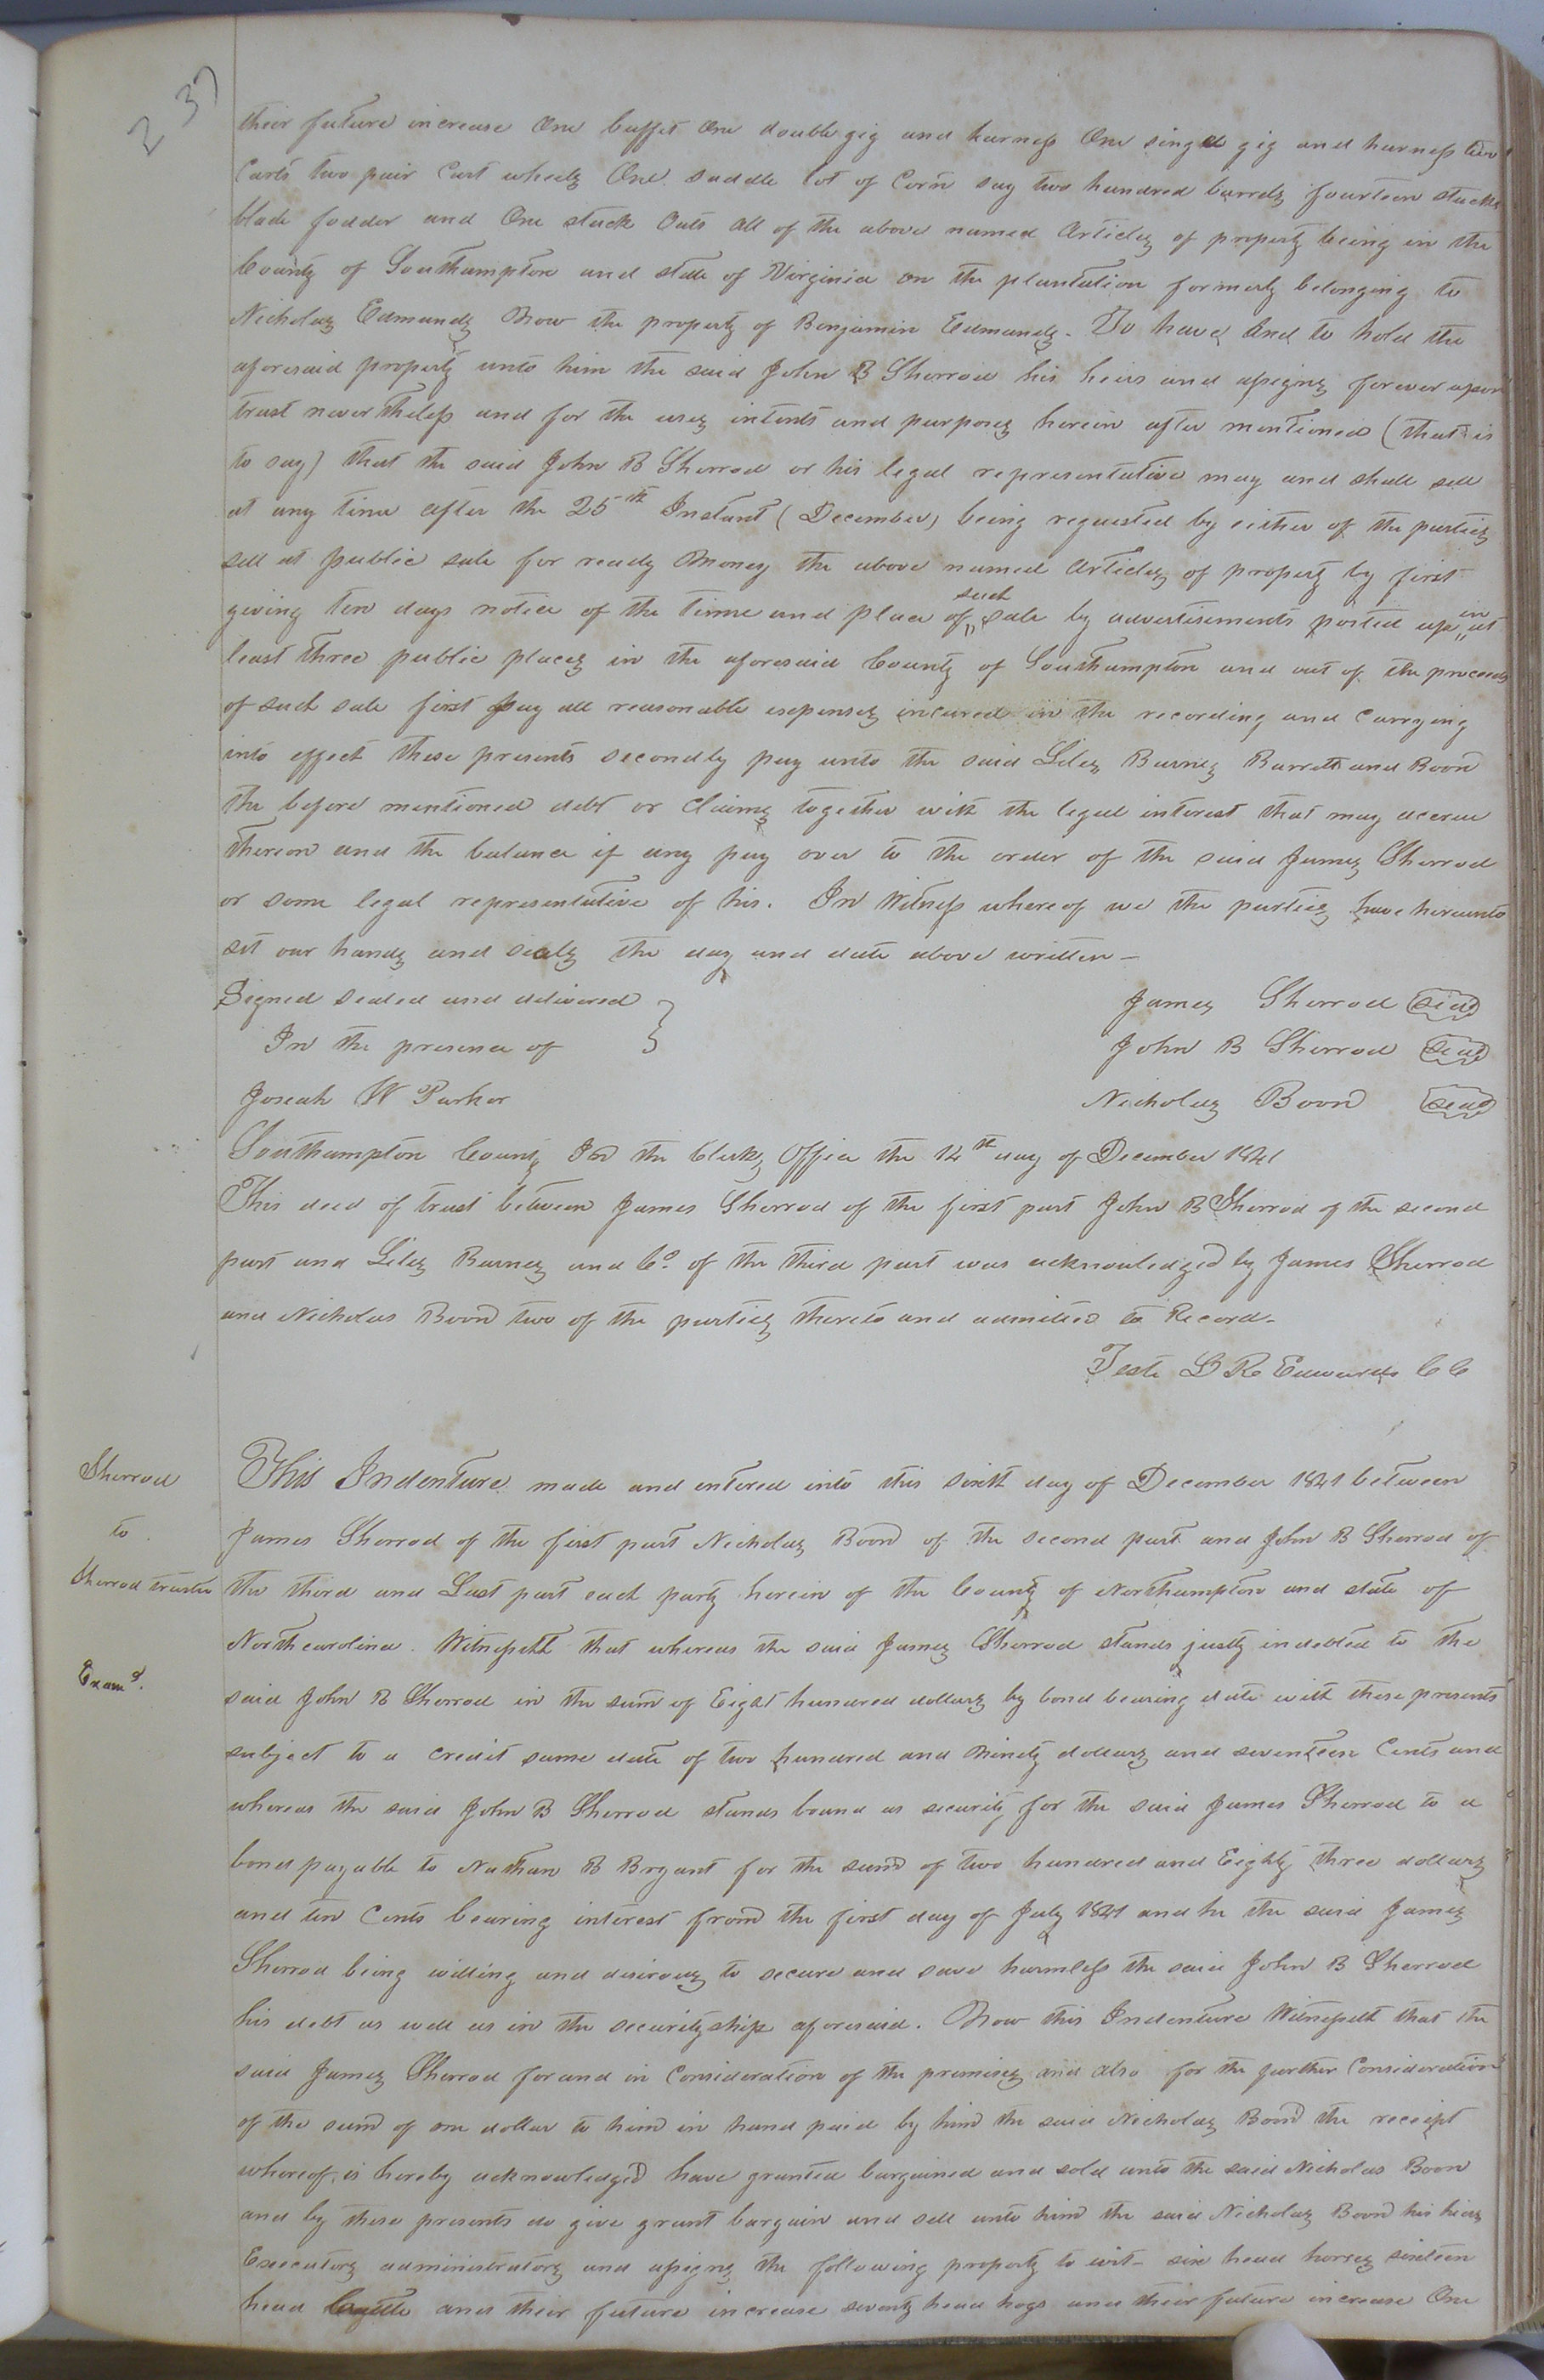 237
their future increase One buffet One double gig and harness One single gig and harness two
Carts two pair Cart wheels One saddle lot of Corn say two hundred barrels fourteen stacks
blade fodder and One stack Oats all of the above named Articles of property being in the
County of Southampton and state of Virginia on the plantation formerly belonging to
Nicholas Edmunds Now the property of Benjamin Edmunds. To have and to hold the
aforesaid property unto him the said John B Sherrod his heirs and assigns forever upon
trust nevertheless and for the uses intents and purposes herein after mentioned (that is
to say) that the said John B Sherrod or his legal representative may and shall sell
at any time after the 25th Instant (December) being requested by either of the parties
sell at public sale for ready Money the above named Articles of property by first
giving ten days notice of the time and place of such sale by advertisements posted up in at
least three public places in the aforesaid County of Southampton and out of the proceeds
of such sale first pay all reasonable expenses incured in the recording and carrying
into effect these presents secondly pay unto the said Liles Barnes Barrett and Boon
the before mentioned debt or Claims together with the legal interest that may accrue
thereon and the balance if any pay over to the order of the said James Sherrod
or some legal representative of his. In Witness whereof we the parties have hereunto
set our hands and seals the day and date above written —
Signed sealed and delivered } James Sherrod seal
In the presence of } John B Sherrod seal
Josiah W Parker Nicholas Boon seal
Southampton County In the Clerks Office the 14th day of December 1841
This deed of trust between James Sherrod of the first part John B Sherrod of the second
part and Liles Barnes and Co. of the third part was acknowledged by James Sherrod
and Nicholas Boon two of the parties thereto and admitted to Record.
Teste L R Edwards CC
Sherrod
to
Sherrod trustee
Examd.
This Indenture made and entered into this sixth day of December 1841 between
James Sherrod of the first part Nicholas Boon of the second part and John B Sherrod of
the third and Last part each party herein of the County of Northampton and state of
Northcarolina. Witnesseth that whereas the said James Sherrod stands justly indebted to the
said John B Sherrod in the sum of Eight hundred dollars by bond bearing date with these presents
subject to a credit same date of two hundred and Ninety dollars and seventeen Cents and
whereas the said John B Sherrod stands bound as security for the said James Sherrod to a
bond payable to Nathan B Bryant for the sum of two hundred and Eighty three dollars
and ten Cents bearing interest from the first day of July 1841 and he the said James
Sherrod being willing and desirous to secure and save harmless the said John B Sherrod
his debt as well as in the securityship aforesaid. Now this Indenture Witnesseth that the
said James Sherrod for and in Consideration of the premises and also for the further Consideration
of the sum of one dollar to him in hand paid by him the said Nicholas Boon the receipt
whereof is hereby acknowledged have granted bargained and sold unto the said Nicholas Boon
and by these presents do give grant bargain and sell unto him the said Nicholas Boon his heirs
Executors administrators and assigns the following property to wit- six head horses sixteen
head Cattle and their future increase seventy head hogs and their future increase One